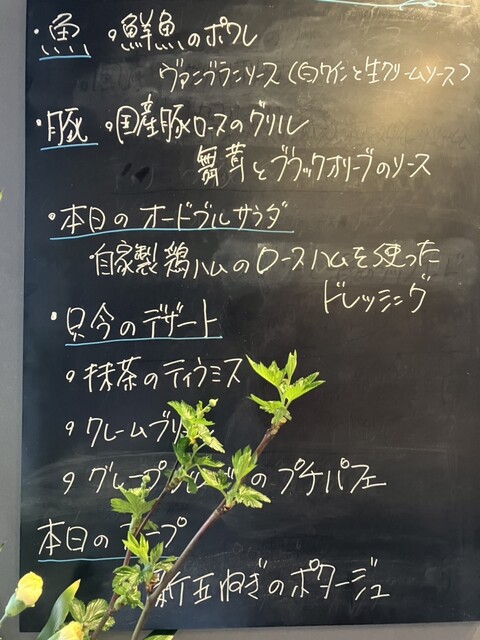 ・魚 ○鮮魚のポワレ
ヴァンブランソース（白ワインと生クリームソース）
・豚 ○国産豚ロースのグリル
舞茸とブラックオリーブのソース
・本日のオードブルサラダ
・自家製鶏ハムのロースハムを使った
ドレッシング
・只今のデザート
○抹茶のティラミス
○クレームブリ
○グレープ のプチパフェ
本日の プ
新玉ねぎのポタージュ